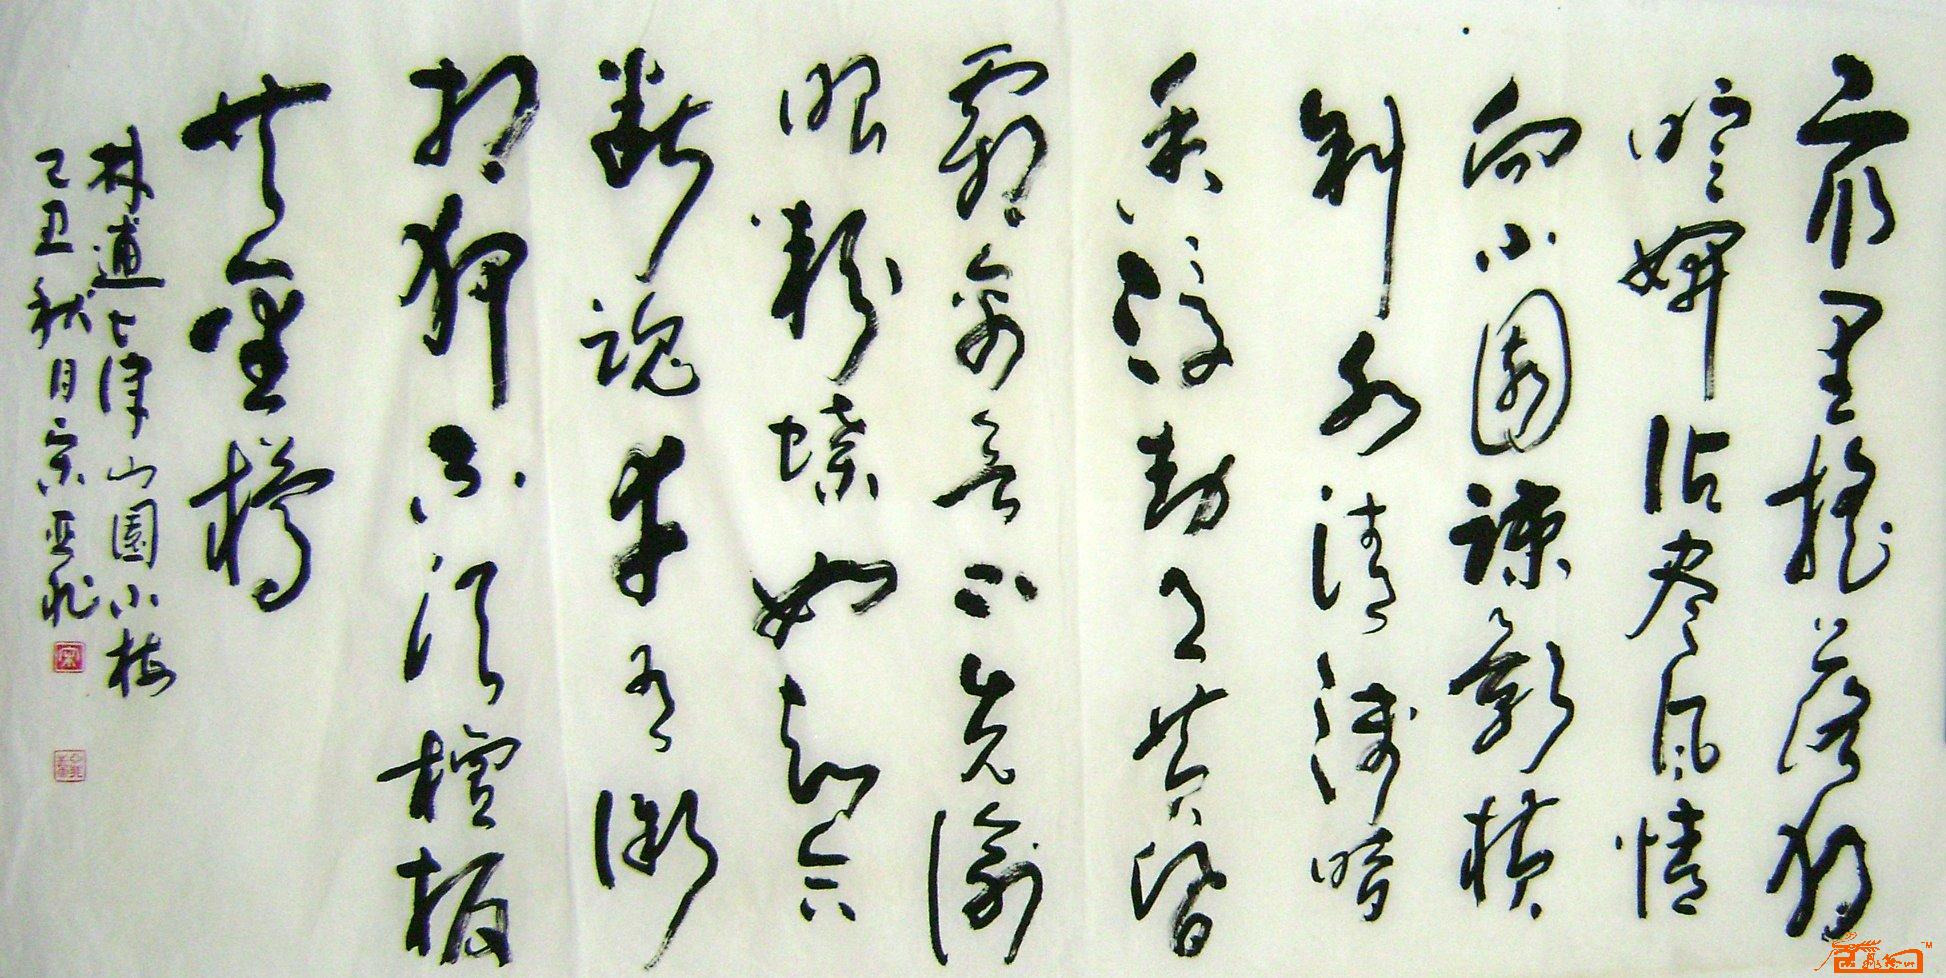 衆芳摇落独
暄妍佔尽风情
向小園疎影横
斜水清浅暗
香浮动月黄昏
霜禽欲下先偷
眼粉蝶如知合
断魂幸有微
相狎不须檀板
共金樽
林逋七律山園小梅
己丑秋月宋亚飛
宋